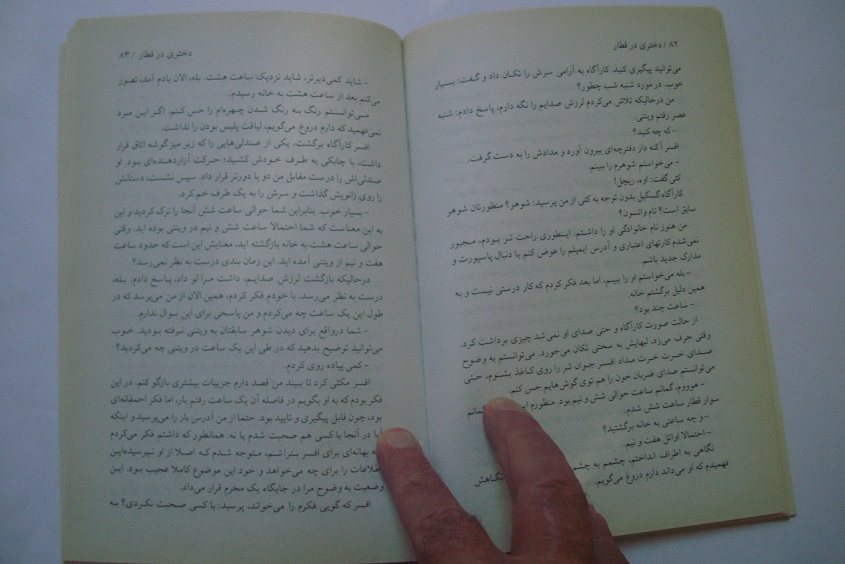 ۸۲ / دختری در قطار
می‌توانید پیگیری کنید. کارآگاه به آرامی سرش را تکان داد و گفت: بسیار
خوب. در مورد شنبه شب چطور؟
من درحالیکه تلاش می‌کردم لرزش صدایم را نگه دارم، پاسخ دادم: شنبه
عصر رفتم ویتنی.
- که چه کنید؟
افسر آکنه دار دفترچه‌ای بیرون آورد و مدادش را به دست گرفت.
- می‌خواستم شوهرم را ببینم.
کتی گفت: اوه، ریچل!
کارآگاه گسکیل بدون توجه به کتی از من پرسید: شوهر؟ منظورتان شوهر
سابق است؟ تام واتسون؟
من هنوز نام خانوادگی او را داشتم. اینطوری راحت تر بودم، مجبور
نمی‌شدم کارتهای اعتباری و آدرس ایمیلم را عوض کنم یا دنبال پاسپورت و
مدارک جدید باشم.
- بله می‌خواستم او را ببینم، اما بعد فکر کردم که کار درستی نیست و به
همین دلیل برگشتم خانه.
- ساعت چند بود؟
از حالت صورت کارآگاه و حتی صدای او نمی‌شد چیزی برداشت کرد.
وقتی حرف می‌زد، لبهایش به سختی تکان می‌خورد. می‌توانستم به وضوح
صدای خرت خرت مداد افسر جوان تر را روی کاغذ بشنوم، حتی
می‌توانستم صدای ضربان خون را هم توی گوش‌هایم حس کنم.
- هوووم، گمانم ساعت حوالی شش و نیم بود. منظورم این گمانم
سوار قطار ساعت شش شدم.
- و چه ساعتی به خانه برگشتید؟
- احتمالا اوائل هفت و نیم.
نگاهی به اطراف انداختم، چشمم به چشم نگاهش
فهمیدم که او می‌داند دارم دروغ می‌گویم.
دختری در قطار / ۸۳
- شاید کمی‌دیرتر، شاید نزدیک ساعت هشت. بله، الان یادم آمد، تصور
می‌کنم بعد از ساعت هشت به خانه رسیدم.
می‌توانستم رنگ به رنگ شدن چهره‌ام را حس کنم. اگر این مرد
نمی‌فهمید که دارم دروغ می‌گویم، لیاقت پلیس بودن را نداشت.
افسر کارآگاه برگشت، یکی از صندلی‌هایی را که زیر میز گوشه اتاق قرار
داشت، با چابکی به طرف خودش کشید؛ حرکت آزاردهنده‌ای بود. او
صندلی‌اش را درست مقابل من دو پا دورتر قرار داد. سپس نشست، دستانش
را روی زانویش گذاشت و سرش را به یک طرف خم کرد.
- بسیار خوب. بنابراین شما حوالی ساعت شش آنجا را ترک کردید و این
به این معناست که شما احتمالا ساعت شش و نیم در ویتنی بوده اید. وقتی
حوالی ساعت هشت به خانه بازگشته اید، معنایش این است که حدود ساعت
هفت و نیم از ویتنی آمده اید. این زمان بندی درست به نظر نمی‌رسد؟
درحالیکه بازگشت لرزش صدایم، داشت مرا لو داد، پاسخ دادم: بله،
درست به نظر می‌رسد. با خودم فکر کردم، همین الان از من می‌پرسد که در
طول این یک ساعت چه می‌کردم و من پاسخی برای این سوال ندارم.
- شما درواقع برای دیدن شوهر سابقتان به ویتنی نرفته بودید. خوب
می‌توانید توضیح بدهید که در طی این یک ساعت در ویتنی چه می‌کردید؟
- کمی پیاده روی کردم.
افسر مکثی کرد تا ببیند من قصد دارم جزییات بیشتری بازگو کنم. در این
فکر بودم که به او بگویم در فاصله آن یک ساعت رفتم بار، اما فکر احمقانه‌ای
بود، چون قابل پیگیری و تایید بود. حتما از من آدرس بار را می‌پرسید و اینکه
آیا در آنجا با کسی هم صحبت شدم یا نه. همانطور که داشتم فکر می‌کردم
چه بهانه‌ای برای افسر بتراشم، متوجه شدم که اصلا از او نپرسیده‌ام این
اطلاعات را برای چه می‌خواهد و خود این موضوع کاملا عجیب بود. این
وضعیت به وضوح مرا در جایگاه یک مجرم قرار می‌داد.
افسر که گویی فکرم را می‌خواند، پرسید: با کسی صحبت نکردی؟ به